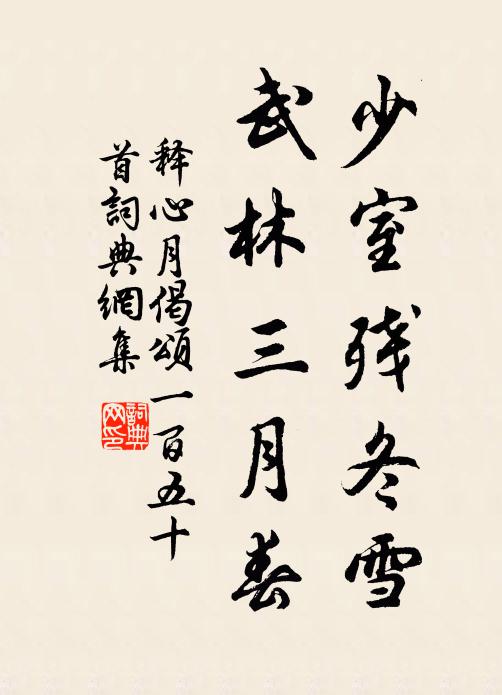 少室残冬雪
武林三月春
释心月偈頌一百五十
首詞典網集
詞典网印